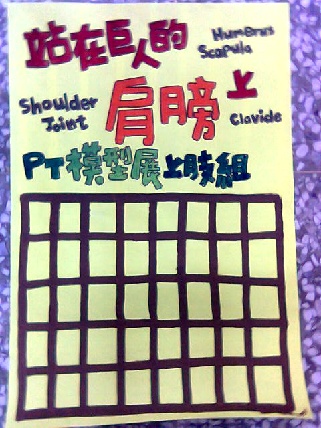 站在巨人的
Humerus
Scapula
Shoulder
Joint
肩膀上
Clavicle
PT模型展上肢組